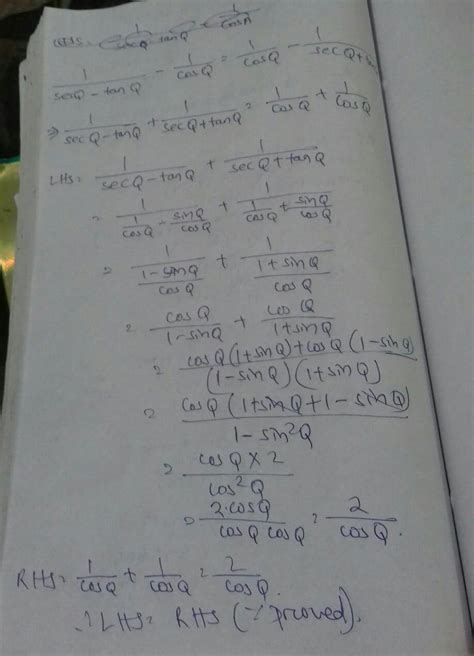 1/(secQ - tanQ) - 1/cosQ = 1/cosQ - 1/
⇒ 1/(secQ - tanQ) + 1/(secQ + tanQ) = 1/cosQ + 1/cosQ
LHS = 1/(secQ - tanQ) + 1/(secQ + tanQ)
= 1/(1/cosQ - sinQ/cosQ) + 1/(1/cosQ + sinQ/cosQ)
= 1/((1 - sinQ)/cosQ) + 1/((1 + sinQ)/cosQ)
= cosQ/(1 - sinQ) + cosQ/(1 + sinQ)
= (cosQ (1 + sinQ) + cosQ (1 - sinQ))/((1 - sinQ) (1 + sinQ))
= (cosQ (1 + sinQ + 1 - sinQ))/(1 - sin²Q)
= (cosQ × 2)/cos²Q
= (2.cosQ)/(cosQ cosQ) = 2/cosQ.
RHS = 1/cosQ + 1/cosQ = 2/cosQ.
∴ LHS = RHS (∵ proved).